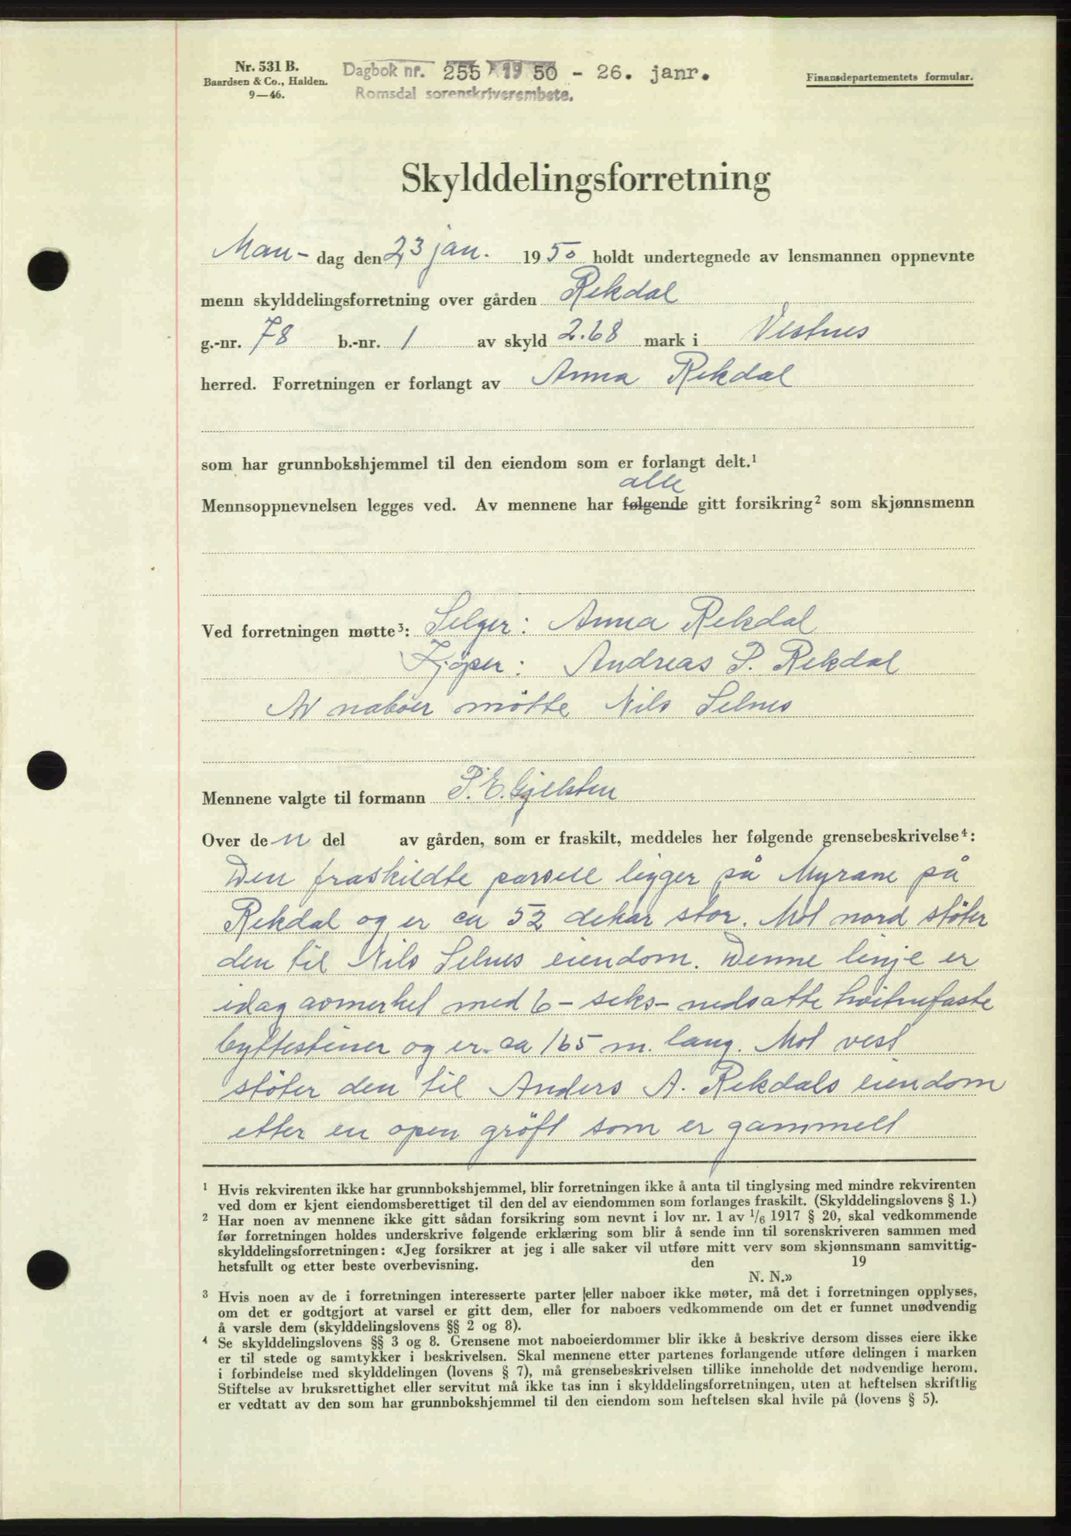 Nr. 531 B.
Baardsen & Co., Halden.
9—46.
Dagbok nr. 255 1950 - 26. janr.
Romsdal sorenskriverembete.
Finansdepartementets formular.
Skylddelingsforretning
Man- dag den 23 jan. 1950 holdt undertegnede av lensmannen oppnevnte
menn skylddelingsforretning over gården Rekdal
g.-nr. 78 b.-nr. 1 av skyld 2.68 mark i Vestnes
herred. Forretningen er forlangt av Anna Rekdal
som har grunnbokshjemmel til den eiendom som er forlangt delt.¹
alle
Mennsoppnevnelsen legges ved. Av mennene har følgende gitt forsikring² som skjønnsmenn
Ved forretningen møtte³: Selger: Anna Rekdal
Kjøper: Andreas P. Rekdal
Av naboer møtte Nils Selnes
Mennene valgte til formann P. E. Gjelsten
Over den del av gården, som er fraskilt, meddeles her følgende grensebeskrivelse⁴:
Den fraskildte parsell ligger på Myrane på
Rekdal og er ca 52 dekar stor. Mot nord støter
den til Nils Selnes eiendom. Denne linje er
idag avmerket med 6 - seks - nedsatte hvitnefaste
byttesteiner og er ca 165 m. lang. Mot vest
støter den til Anders A. Rekdals eiendom
etter en open grøft som er gammelt
¹ Hvis rekvirenten ikke har grunnbokshjemmel, blir forretningen ikke å anta til tinglysing med mindre rekvirenten
ved dom er kjent eiendomsberettiget til den del av eiendommen som forlanges fraskilt. (Skylddelingslovens § 1.)
² Har noen av mennene ikke gitt sådan forsikring som nevnt i lov nr. 1 av 1/6 1917 § 20, skal vedkommende
før forretningen holdes underskrive følgende erklæring som blir å sende inn til sorenskriveren sammen med
skylddelingsforretningen: «Jeg forsikrer at jeg i alle saker vil utføre mitt verv som skjønnsmann samvittig-
hetsfullt og etter beste overbevisning. den 19
N. N.»
³ Hvis noen av de i forretningen interesserte parter eller naboer ikke møter, må det i forretningen opplyses,
om det er godtgjort at varsel er gitt dem, eller for naboers vedkommende om det er funnet unødvendig
å varsle dem (skylddelingslovens §§ 2 og 8).
⁴ Se skylddelingslovens §§ 3 og 8. Grensene mot naboeierdommer blir ikke å beskrive dersom disses eiere ikke
er til stede og samtykker i beskrivelsen. Skal mennene etter partenes forlangende utføre delingen i marken
i forbindelse med skylddelingen (lovens § 7), må grensebeskrivelsen tillike inneholde det nødvendige herom.
Stiftelse av bruksrettighet eller servitut må ikke tas inn i skylddelingsforretningen, uten at heftelsen skriftlig
er vedtatt av den som har grunnbokshjemmel til den eiendom som heftelsen skal hvile på (lovens § 5).